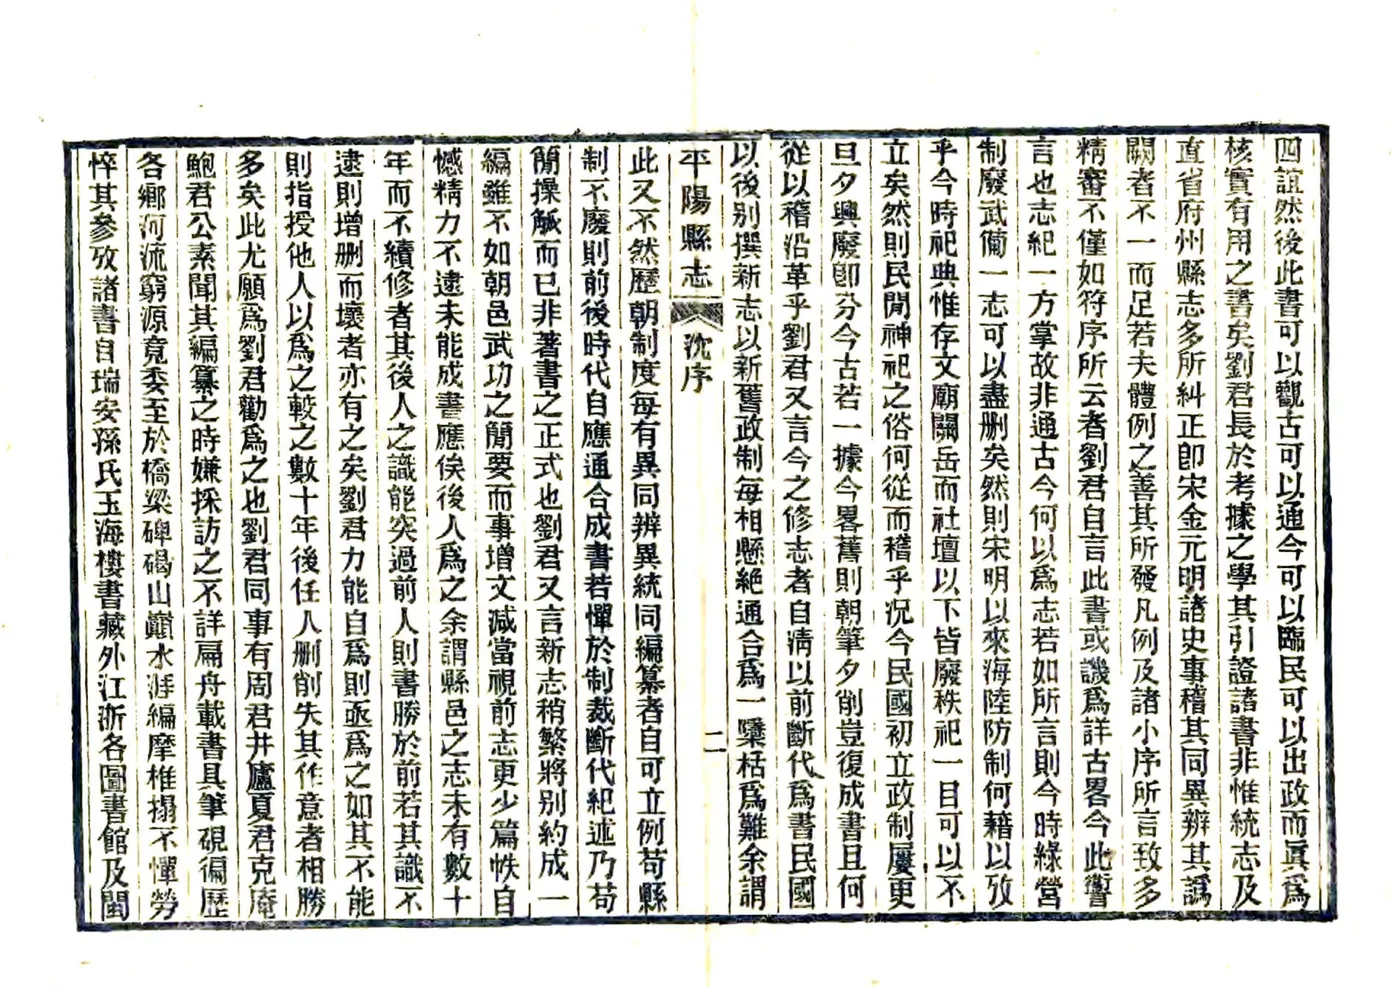 四誼然後此書可以觀古可以通今可以臨民可以出政而眞爲
核實有用之書矣劉君長於考據之學其引證諸書非惟統志及
直省府州縣志多所糾正卽宋金元明諸史事稽其同異辨其譌
闕者不一而足若夫體例之善其所發凡例及諸小序所言致多
精審不僅如符序所云者劉君自言此書或譏爲詳古畧今此讏
言也志紀一方掌故非通古今何以爲志若如所言則今時綠營
制廢武備一志可以盡删矣然則宋明以來海陸防制何藉以攷
乎今時祀典惟存文廟關岳而社壇以下皆廢秩祀一目可以不
立矣然則民閒神祀之俗何從而稽乎況今民國初立政制屢更
旦夕興廢卽分今古若一據今畧舊則朝筆夕削豈復成書且何
從以稽沿革乎劉君又言今之修志者自淸以前斷代爲書民國
以後别撰新志以新舊政制每相懸絕通合爲一櫽栝爲難余謂
平陽縣志 沈序 二
此又不然歷朝制度每有異同辨異統同編纂者自可立例苟縣
制不廢則前後時代自應通合成書若憚於制裁斷代紀述乃苟
簡操觚而已非著書之正式也劉君又言新志稍繁將别約成一
編雖不如朝邑武功之簡要而事增文減當視前志更少篇帙自
憾精力不逮未能成書應俟後人爲之余謂縣邑之志未有數十
年而不續修者其後人之識能突過前人則書勝於前若其識不
逮則增删而壞者亦有之矣劉君力能自爲則亟爲之如其不能
則指授他人以爲之較之數十年後任人删削失其作意者相勝
多矣此尤願爲劉君勸爲之也劉君同事有周君井廬夏君克庵
鮑君公素聞其編纂之時嫌採訪之不詳扁舟載書具筆硯徧歷
各鄉河流窮源竟委至於橋梁碑碣山巔水涯編摩椎搨不憚勞
悴其參攷諸書自瑞安孫氏玉海樓書藏外江浙各圖書館及閩